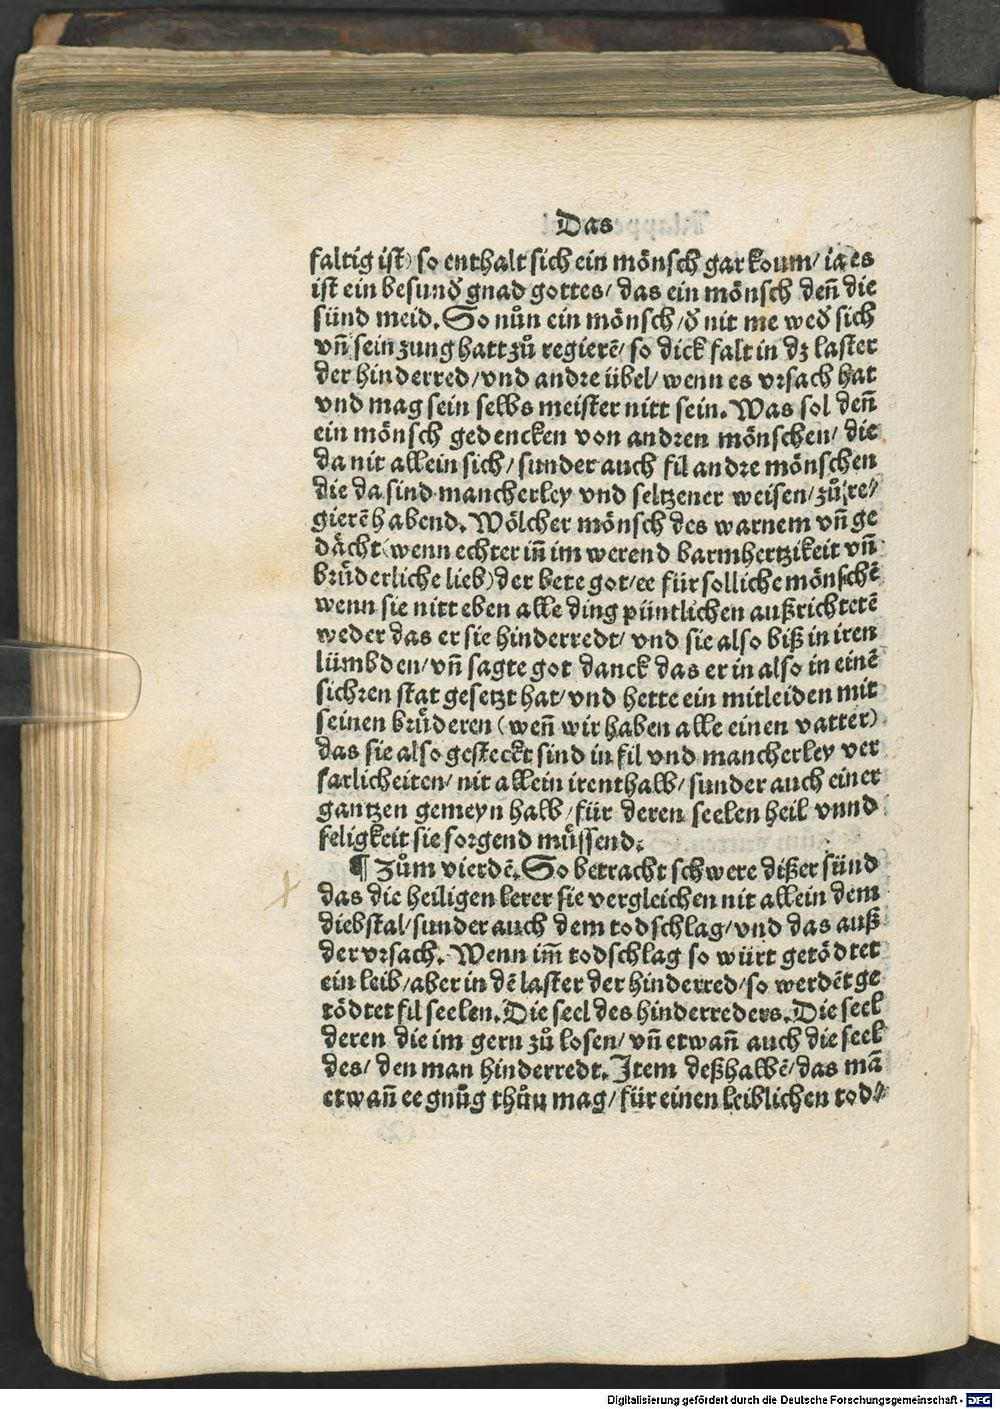 Das
faltig ist) so enthalt sich ein mönsch gar koum/ ia es
ist ein besund̕ gnad gottes/ das ein mönsch deñ die
sünd meid. So nůn ein mönsch/ d̕ nit me wed̕ sich
vñ sein zung hatt zů regierē/ so dick falt in dz laster
der hinderred/ vnd andre übel/ wenn es vrsach hat
vnd mag sein selbs meister nitt sein. Was sol deñ
ein mönsch gedencken von andren mönschen/ die
da nit allein sich/ sunder auch fil andre mönschen
die da sind mancherley vnd seltzener weisen/ zů re⸗
gierē habend. Wölcher mönsch des warnem vñ ge
dächt (wenn echter iñ im werend barmhertzikeit vñ
brüderliche lieb) der bete got/ ee für solliche mönschē
wenn sie nitt eben alle ding püntlichen außrichtetē
weder das er sie hinderredt/ vnd sie also biß in iren
lümbden/ vñ sagte got danck das er in also in einē
sichren stat gesetzt hat/ vnd hette ein mitleiden mit
seinen brüderen (weñ wir haben alle einen vatter)
das sie also gesteckt sind in fil vnd mancherley ver
farlicheiten/ nit allein irenthalb/ sunder auch einer
gantzen gemeyn halb/ für deren seelen heil vnnd
seligkeit sie sorgend müssend.
¶ Zům vierdē. So betracht schwere dißer sünd
das die heiligen lerer sie vergleichen nit allein dem
diebstal/ sunder auch dem todschlag/ vnd das auß
der vrsach. Wenn im̄ todschlag so würt getödtet
ein leib/ aber in dē laster der hinderred/ so werdēt ge
tödtet fil seelen. Die seel des hinderreders. Die seel
deren die im gern zů losen/ vñ etwañ auch die seel
des/ den man hinderredt. Item deßhalbē/ das mā
etwañ ee gnůg thůn mag/ für einen leiblichen tod⸗
Digitalisierung gefördert durch die Deutsche Forschungsgemeinschaft - DFG